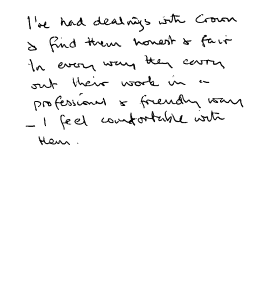 I've had dealings with Crown
& find them honest & fair
In every way they carry
out their work in a
professional & friendly way
– I feel comfortable with
them.